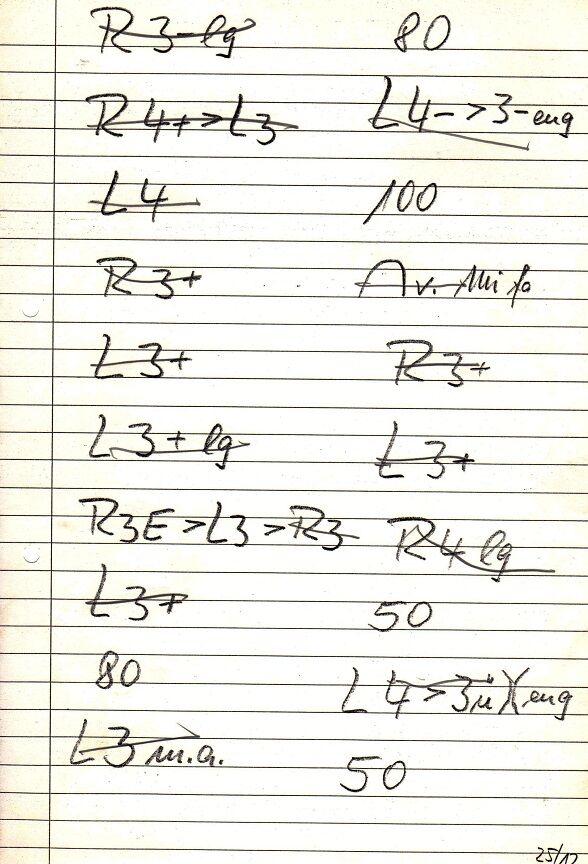 R3-lg
R4+>L3
L4
R3+
L3+
L3+ lg
R3E >L3 >R3
L3+
80
L3 m.a.
80
L4->3-eng
100
Av.
R3+
L3+
R4 lg
50
L4>3ü)(eng
50
25/12